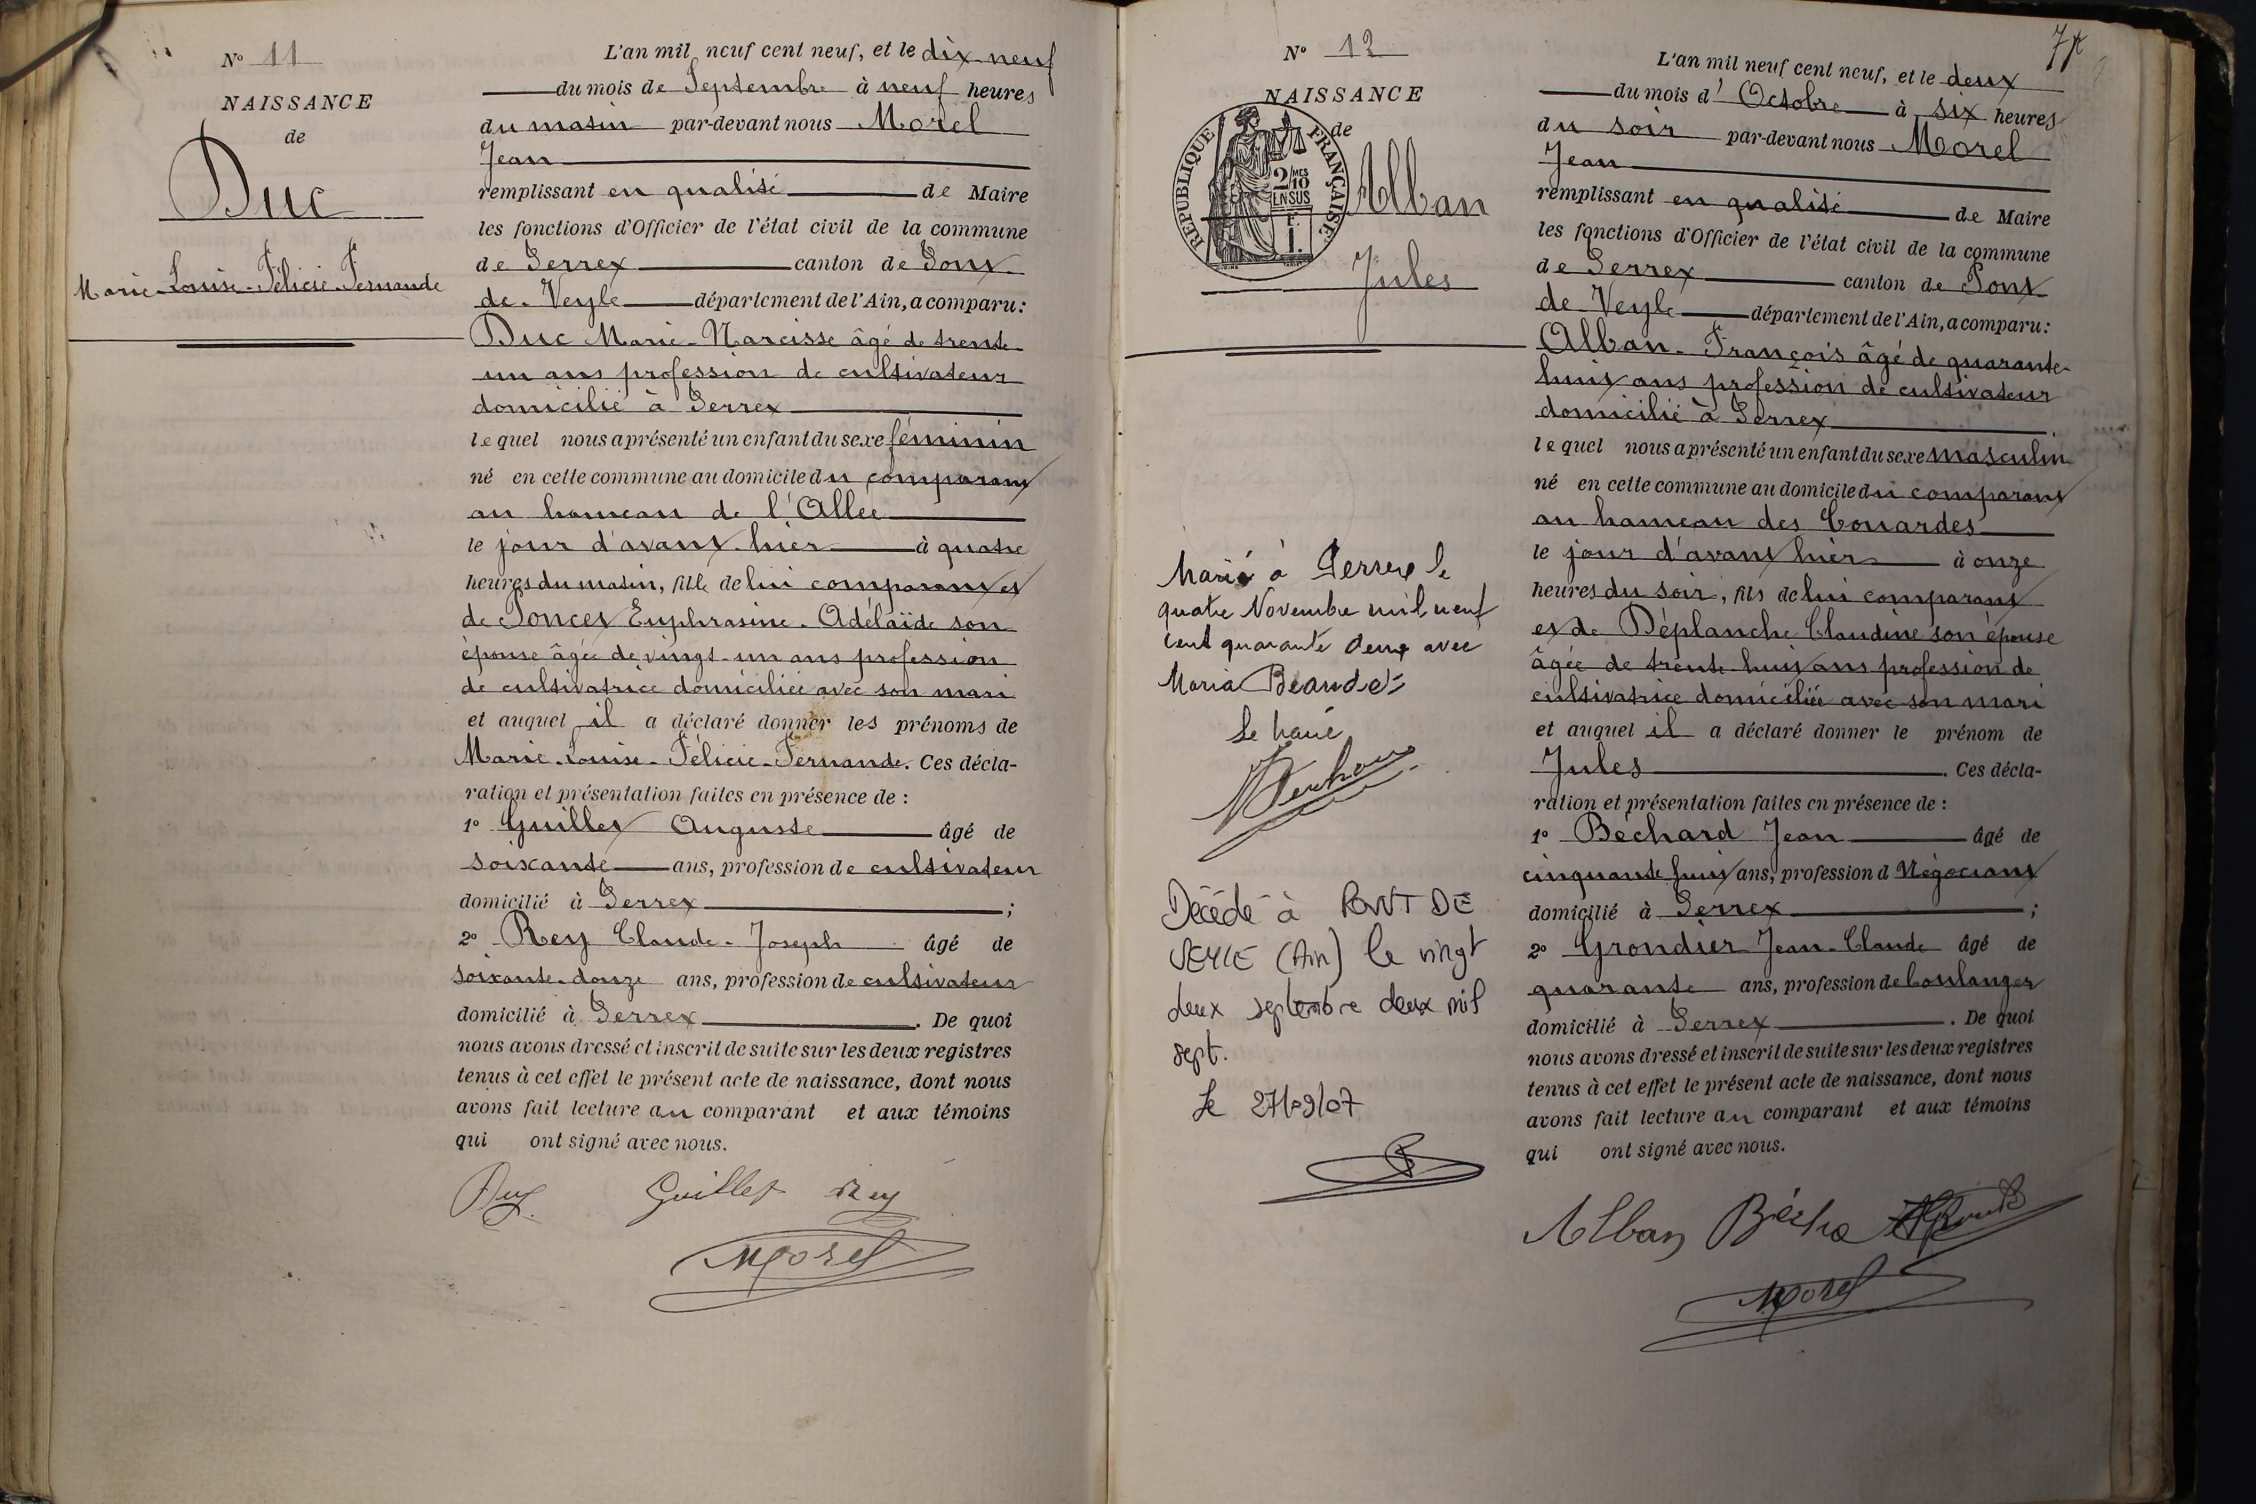 N° 11
NAISSANCE
de
Duc
Marie-Louise-Félicie-Fernande
L'an mil neuf cent neuf, et le dix-neuf
du mois de Septembre à neuf heures
du matin par-devant nous Morel
Jean
remplissant en qualité de Maire
les fonctions d'Officier de l'état civil de la commune
de Perrex canton de Pont
de-Veyle département de l'Ain, a comparu:
Duc Marie-Narcisse âgé de trente
un ans profession de cultivateur
domicilié à Perrex
lequel nous a présenté un enfant du sexe féminin
né en cette commune au domicile du comparant
au hameau de l'Allée
le jour d'avant hier à quatre
heures du matin, fille de lui comparant et
de Poncet Euphrasine-Adélaïde son
épouse âgée de vingt-un ans profession
de cultivatrice domiciliée avec son mari
et auquel il a déclaré donner les prénoms de
Marie-Louise-Félicie-Fernande. Ces décla-
ration et présentation faites en présence de :
1° Guillet Auguste âgé de
soixante ans, profession de cultivateur
domicilié à Perrex ;
2° Rey Claude-Joseph âgé de
soixante-douze ans, profession de cultivateur
domicilié à Perrex . De quoi
nous avons dressé et inscrit de suite sur les deux registres
tenus à cet effet le présent acte de naissance, dont nous
avons fait lecture au comparant et aux témoins
qui ont signé avec nous.
Duc Guillet Rey
Morel
N° 12
NAISSANCE
de
REPUBLIQUE FRANÇAISE
2/10 MES
EN SUS
F.
1.
Alban
Jules
Marié à Perrex le
quatre Novembre mil neuf
cent quarante deux avec
Maria Beaudet
Le maire
Décédé à PONT DE
VEYLE (Ain) le vingt
deux septembre deux mil
sept.
Le 27/09/07
7
L'an mil neuf cent neuf, et le deux
du mois d'Octobre à six heures
du soir par-devant nous Morel
Jean
remplissant en qualité de Maire
les fonctions d'Officier de l'état civil de la commune
de Perrex canton de Pont
de Veyle département de l'Ain, a comparu:
Alban-François âgé de quarante-
huit ans profession de cultivateur
domicilié à Perrex
lequel nous a présenté un enfant du sexe masculin
né en cette commune au domicile du comparant
au hameau des Couardes
le jour d'avant hier à onze
heures du soir, fils de lui comparant
et de Déplanche Claudine son épouse
âgée de trente huit ans profession de
cultivatrice domiciliée avec son mari
et auquel il a déclaré donner le prénom de
Jules . Ces décla-
ration et présentation faites en présence de :
1° Béchard Jean âgé de
cinquante huit ans, profession d Négociant
domicilié à Perrex ;
2° Grondier Jean-Claude âgé de
quarante ans, profession de boulanger
domicilié à Perrex . De quoi
nous avons dressé et inscrit de suite sur les deux registres
tenus à cet effet le présent acte de naissance, dont nous
avons fait lecture au comparant et aux témoins
qui ont signé avec nous.
Alban
Morel